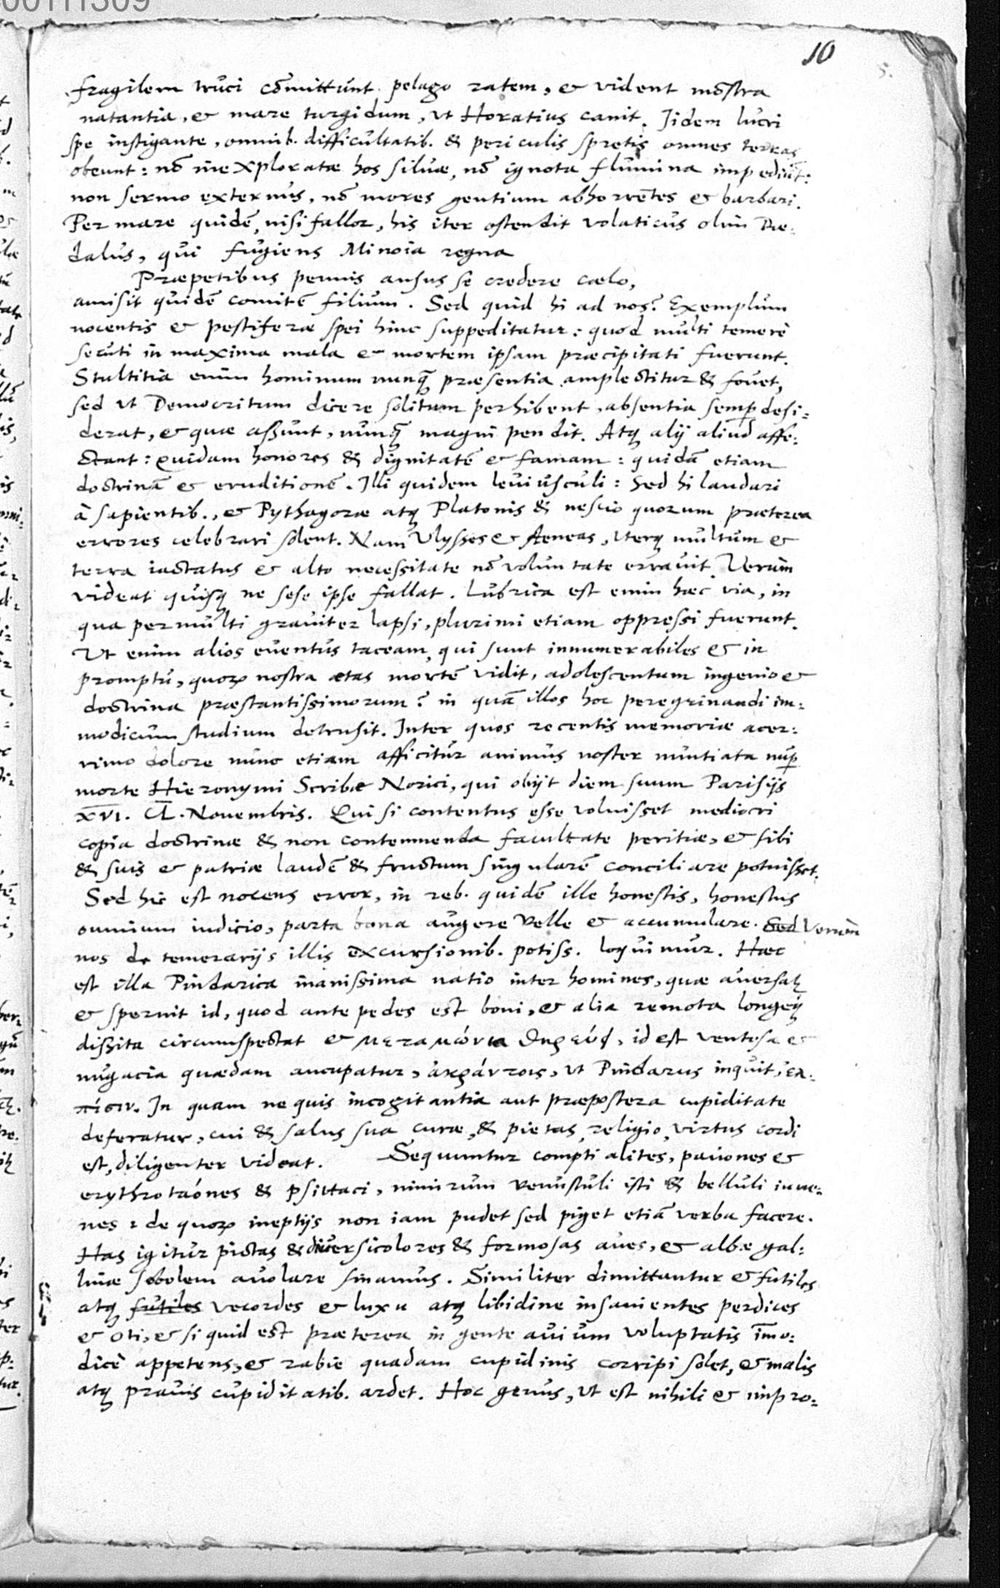 00111309
10
5.
fragilem truci cõmittunt pelago ratem, & vident mõstra
natantia, & mare turgidum, ut Horatius canit. Iidem lucri
spe instigante, omnib. difficultatib. & periculis spretis omnes terras
obeunt: nõ inexploratæ hos siluæ, nõ ignota flumina impediũt:
non sermo externus, nõ mores gentium abhorrẽtes & barbari.
Per mare quidẽ, nisi fallor, his iter ostendit volaticus olim Dæ-
dalus, qui fugiens Minoia regna
Præpetibus pennis ausus se credere cælo,
amisit quidẽ comitẽ filium. Sed quid hi ad nos? Exemplum
nocentis & pestiferæ spei hinc suppeditatur: quod multi temerè
secuti in maxima mala & mortem ipsam præcipitati fuerunt.
Stultitia enim hominum nunq̃ præsentia amplectitur & fouet,
sed ut Democritum dicere solitum perhibent, absentia semp desi-
derat, & quæ assunt, nunq̃ magni pendit. Atq; alij aliud affe-
ctant: quidam honores & dignitatẽ & famam: quidã etiam
doctrinã & eruditionẽ. Illi quidem leuiusculi: Sed hi laudari
à sapientib., & Pythagoræ atq; Platonis & nescio quorum præterea
errores celebrari solent. Nam Ulysses & Aeneas, uterq; multum &
terra iactatus & alto necessitate nõ voluntate errauit. Verùm
videat quisq; ne sese ipse fallat. Lubrica est enim hæc via, in
qua permulti grauiter lapsi, plurimi etiam oppressi fuerunt.
Ut enim alios euentus taceam, qui sunt innumerabiles & in
promptu, quorũ nostra ætas mortẽ vidit, adolescentum ingenio &
doctrina præstantissimorum? in quã illos hoc peregrinandi im-
modicum studium detrusit. Inter quos recentis memoriæ acer-
rimo dolore nunc etiam afficitur animus noster nuntiata nup
morte Hieronymi Scribæ Norici, qui obijt diem suum Parisijs
XVI. CL. Nouembris. Qui si contentus esse voluisset mediocri
copia doctrinæ & non contemnenda facultate peritiæ, & sibi
& suis & patriæ laudẽ & fructum singularẽ conciliare potuisset.
Sed hic est nocens error, in reb. quidẽ ille honestis, honestus
omnium iudicio, parta bona augere velle & accumulare. Sed Verùm
nos de temerarijs illis excursionib. potiss. loquimur. Hæc
est illa Pindarica inanissima natio inter homines, quæ auersat
& spernit id, quod ante pedes est boni, & alia remota longeq;
dissita circumspectat & μεταμώνια θηρεύει, id est ventosa &
nugacia quædam aucupatur, ἀκράντοις, ut Pindarus inquit, ἐλ-
πίσιν. In quam ne quis incogitantia aut præpostera cupiditate
deferatur, cui & salus sua curæ, & pietas, religio, virtus cordi
est, diligenter videat. Sequuntur compti alites, pauones &
erythrotaónes & psittaci, nimirum venustuli isti & belluli iuue-
nes: de quorũ ineptijs non iam pudet sed piget etiã verba facere.
Has igitur pictas & diuersicolores & formosas aues, & albæ gal-
linæ sobolem auolare sinamus. Similiter dimittantur & futiles
atq; futiles vecordes & luxu atq; libidine insanientes perdices
& oti, & si quid est præterea in gente auium voluptatis im̃o-
dicè appetens, & rabie quadam cupidinis corripi solet, & malis
atq; prauis cupiditatib. ardet. Hoc genus, ut est nihili & impro-